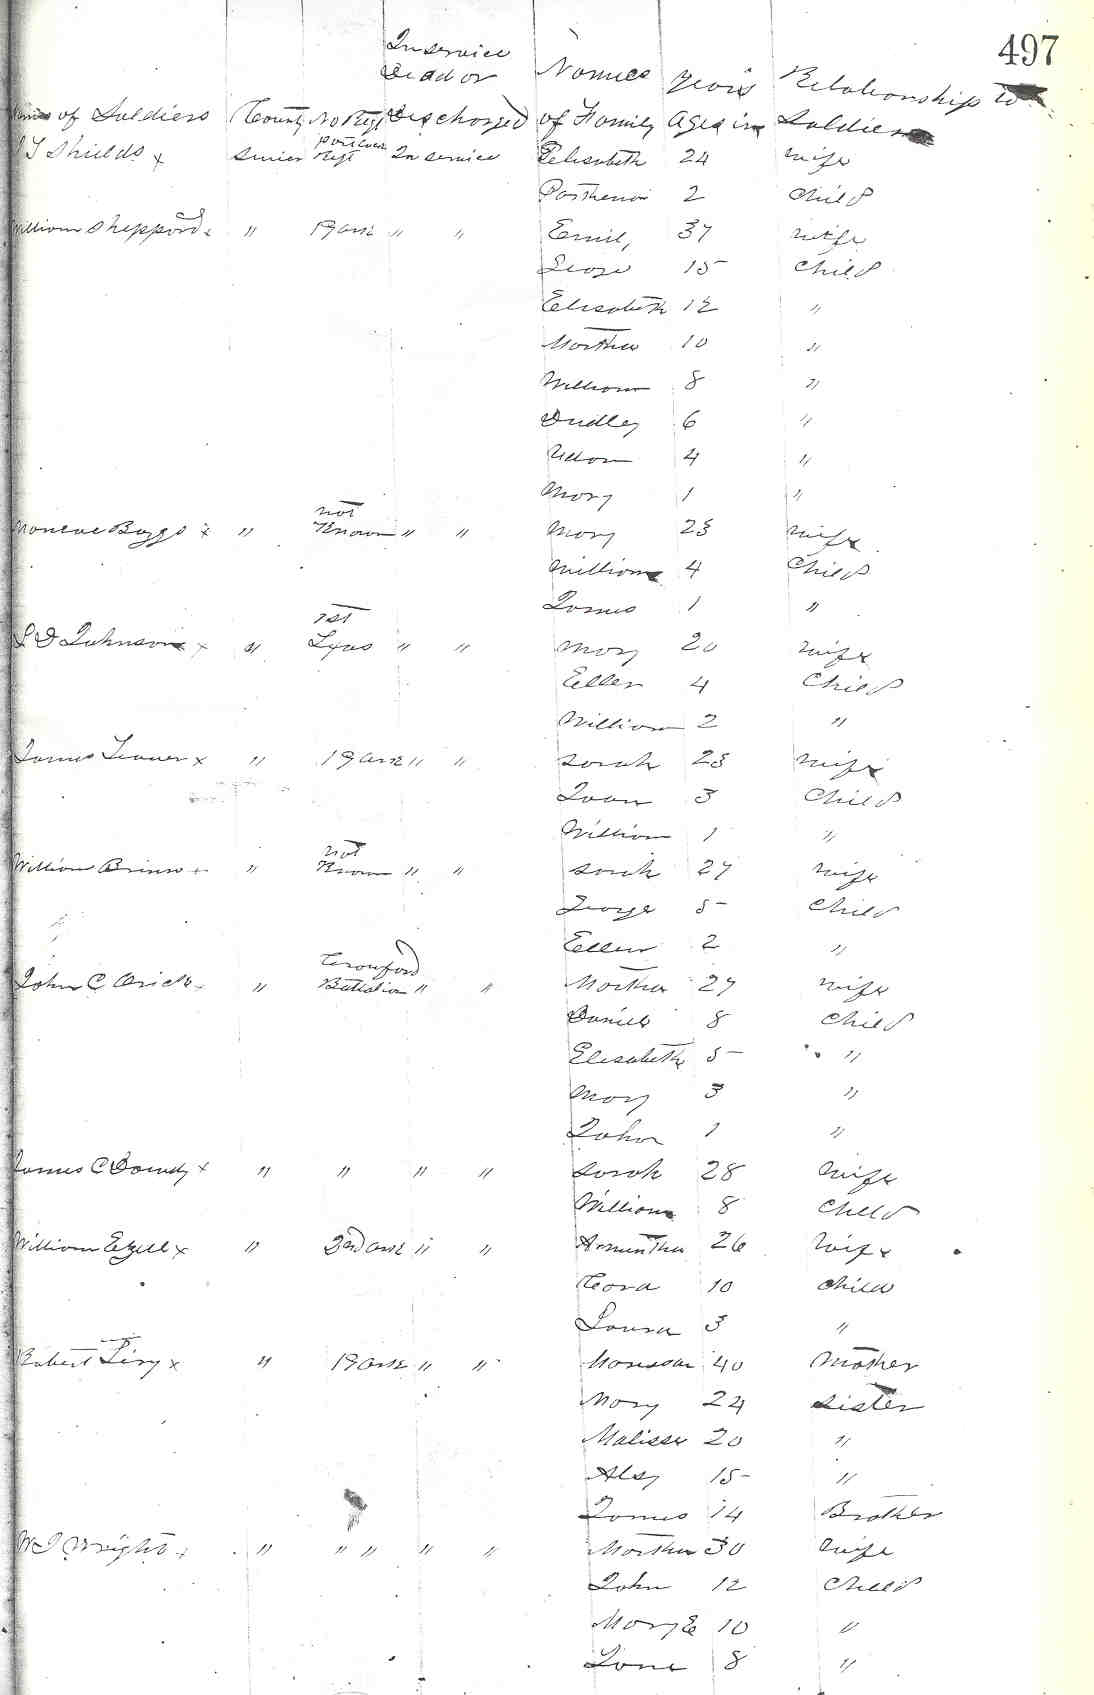 497
In service
Dead or Names Years Relationship to
of Soldiers County No Regt Discharged of Family Ages in Soldiers
Shields x Sevier Regt In service Elisabeth 24 wife
2 Child
William Sheppard x " 19 Ark " " Emily 37 wife
15 Child
Elisabeth 12 "
Martha 10 "
William 8 "
Dudley 6 "
4 "
Mary 1 "
not
Monroe Boggs x " Known " " Mary 23 wife
William 4 Child
James 1 "
1st
Johnson x " " " Mary 20 wife
Ellen 4 Child
William 2 "
James x " 19 Ark " " Sarah 23 wife
3 Child
William 1 "
not
William " Known " " Sarah 27 wife
George 5 Child
Ellen 2 "
Crawford
John C " Battalion " " Martha 27 wife
Daniel 8 Child
Elisabeth 5 "
Mary 3 "
John 1 "
James C x " " " " Sarah 28 wife
William 8 Child
William Ezell x " 2nd Ark " " 26 wife
Cora 10 Child
Laura 3 "
Robert x " 19 Ark " " 40 Mother
Mary 24 Sister
Malissa 20 "
15 "
James 14 Brother
Wright x " " " " " Martha 30 wife
John 12 Child
Mary E 10 "
8 "